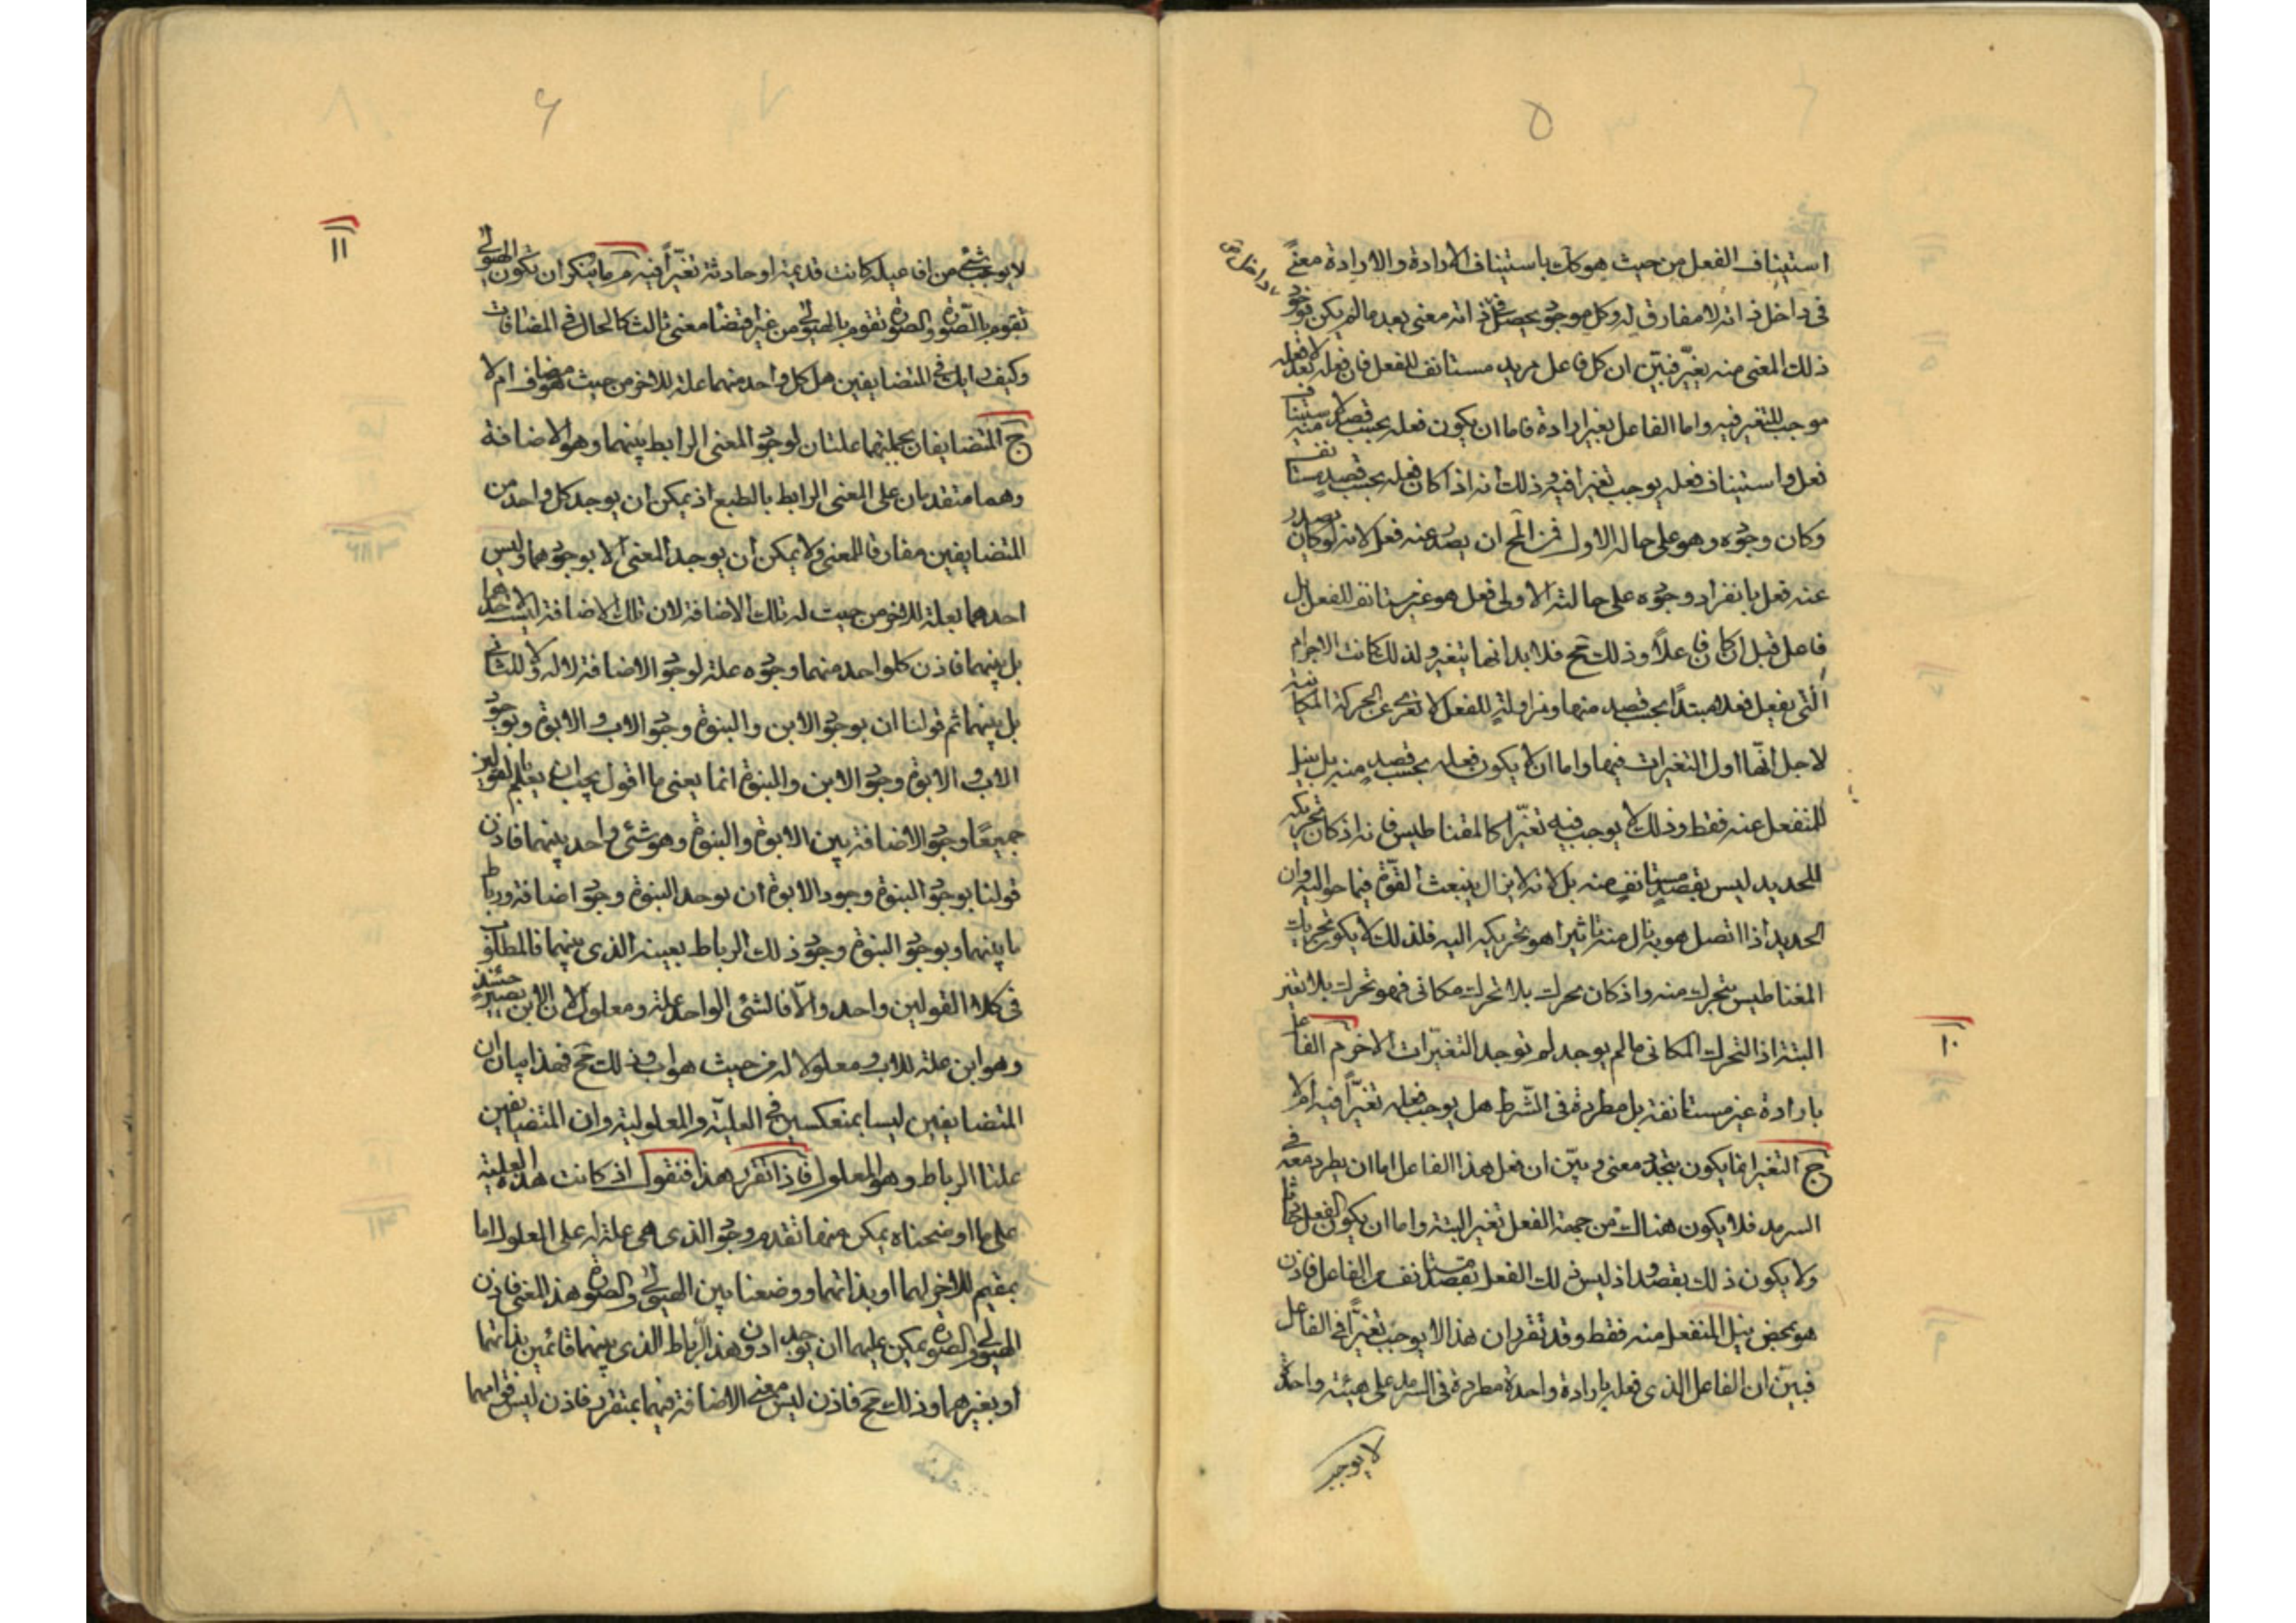 ٥
استيناف الفعل من حيث هو كك باستيناف الارادة والارادة معنىً
داخل
فى داخل ذاته لا مفارق له وكل موجود يحصل فى ذاته معنى بعد ما لم يكن فوجود
ذلك المعنى منه تغيّر فبيّن ان كل فاعل مريد مستانف للفعل فان فعله بعد لا فعله
موجب للتغير فيه واما الفاعل بغير ارادة فاما ان يكون فعله بحسب قصد لاستيناف منه
فعل واستيناف فعله يوجب تغيرا فيه وذلك انه اذا كان فعله بحسب قصدٍ مستانف
وكان وجوده وهو على حاله الاول فمن المح ان يصدر عنه فعل لانه لو كان يصدر
عنه فعل بانفراد وجوده على حالته الاولى فعل هو غير مستانف للفعل بل
فاعل قبل ان كان فاعلاً وذلك مح فلا بد انها يتغير ولذلك كانت الاجرام
الّتى يفعل فعلا مبتدأ بحسب قصد منها ومزاولةٍ للفعل لا تعرى عن الحركة المكانية
لاجل انّها اول التغيرات فيها واما ان لا يكون فعله بحسب قصدٍ منه بل بنيل
المنفعل عنه فقط وذلك لا يوجب فيه تغيّرا كالمقناطيس فانه اذ كان تحريكه
للحديد ليس بقصدٍ مستانفٍ منه بل لانه لا يزال ينبعث القوّة فيما حواليه وان
الحديد اذا اتصل هو به نال منه تاثيرا هو تحريكه اليه فلذلك لا يكون تحريك
المغناطيس بتحرك منه واذ كان محرك بلا تحرك مكانى فهو تحرك بلا تغير
البتة اذ التحرك المكانى ما لم يوجد لم توجد التغيّرات الاخر م الفاعل
١٠
بارادة غير مستانفة بل مطردة فى الشرط هل يوجب فعله تغيّراً فيه ام لا
ج التغير انما يكون بتجدد معنى وبيّن ان فعل هذا الفاعل اما ان يطرد معه فى
السرمد فلا يكون هناك من جهة الفعل تغير البتة واما ان يكون الفعل
ولا يكون ذلك بقصد واذ ليس ذلك الفعل بقصد مستانف من الفاعل فاذن
هو بمحض نيل المنفعل منه فقط وقد تقرر ان هذا لا يوجب تغيّراً فى الفاعل
فبيّن ان الفاعل الذى فعله بارادة واحدة مطردة فى السرمد على هيئة واحدة
لا يوجب
٦
١١
لا يوجب شئ من افاعيله كانت قديمة او حادثة تغيّراً فيه م ما ينكر ان تكون الهيولى
تقوم بالصّورة والصورة تقوم بالهيولى من غير اقتضا معنى ثالث كالحال فى المضافات
وكيف رايك فى المتضايفين هل كل واحد منهما علة للاخر من حيث هو مضاف ام لا
ج المتضايفان بجملتهما علتان لوجود المعنى الرابط بينهما وهو الاضافة
وهما متقدمان على المعنى الرابط بالطبع اذ يمكن ان يوجد كل واحد من
المتضايفين مفارقا للمعنى ولا يمكن ان يوجد المعنى الا بوجودهما وليس
احدهما بعلة للاخر من حيث له تلك الاضافة لان تلك الاضافة ليست لاحدهما
بل بينهما فاذن كلواحد منهما وجوده علة لوجود الاضافة لا له ولا للثانى
بل بينهما ثم قولنا ان بوجود الابن والبنوة وجود الاب والابوة وبوجود
الاب والابوة وجود الابن والبنوة انما يعنى ما اقول يجب ان يعلم بالقولين
جميعًا وجود الاضافة بين الابوة والبنوة وهو شئ واحد بينهما فاذن
قولنا بوجود البنوة وجود الابوة ان توجد البنوة وجود اضافة ورباط
ما بينهما وبوجود البنوة وجود ذلك الرباط بعينه الذى بينهما فالمطلوب
فى كلا القولين واحد والّا فالشئ الواحد علة ومعلول لان الابن يصير حينئذ
وهو ابن علة للاب ومعلولا له من حيث هو اب وذلك مح فهذا بيان ان
المتضايفين ليسا بمنعكسين فى العليّة والمعلولية وان المتضايفين
علتا الرباط وهو المعلول فاذا تقرر هذا فنقول اذ كانت هذه العلية
على ما اوضحناه يمكن منها تقدم وجود الذى هى علة له على المعلول اما
بمقيم للاخر لهما او بذاتهما ووضعنا بين الهيولى والصورة هذا المعنى فاذن
الهيولى والصورة يمكن عليهما ان يوجدا دون هذا الرباط الذى بينهما قائمين بذاتهما
او بغيرهما وذلك مح فاذن ليس معنى الاضافة فيهما بمتقرر فاذن ليس قوامهما